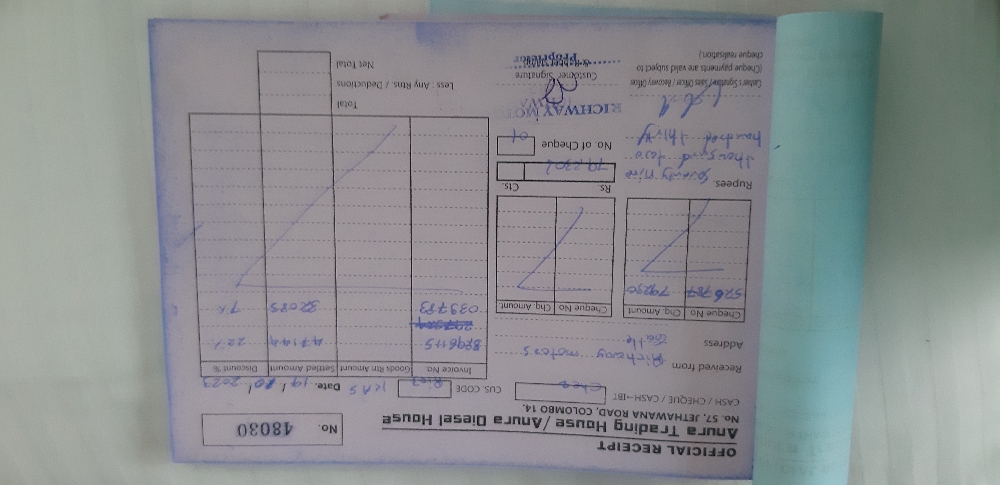 OFFICIAL RECEIPT
Anura Trading House / Anura Diesel House
No. 57, JETHAWANA ROAD, COLOMBO 14.
No. 48030
CASH / CHEQUE / CASH→IBT
CUS. CODE
KAS
Date. 19/ 2023
Received from Richway motors
Address Galle
Cheque No Chq. Amount
526787 79230
Cheque No Chq. Amount
Invoice No. Goods Rtn Amount Settled Amount Discount %
47144 22%
039783 32085 7%
Rupees. Seventy Nine
thousand two
hundred thirty
Rs Cts.
79,230/
No. of Cheque 01
RICHWAY MO
Cashier's Signature / Sales Officer / Recovery Officer
(Cheque payments are valid subject to
cheque realisation.)
Customer Signature
Proprietor
Total
Less . Any Rtns / Deductions
Net Total